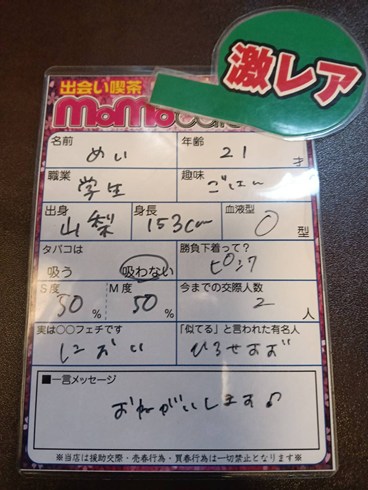 激レア
出会い喫茶
MoMo
名前 めい 年齢 21 才
職業 学生 趣味 ごはん
出身 山梨 身長 153cm 血液型 O 型
タバコは 勝負下着って?
吸う 吸わない ピンク
S度 M度 今までの交際人数
50% 50% 2人
実は○○フェチです 「似てる」と言われた有名人
におい ひろせすず
■一言メッセージ
おねがいします♪
※当店は援助交際・売春行為・買春行為は一切禁止となります※